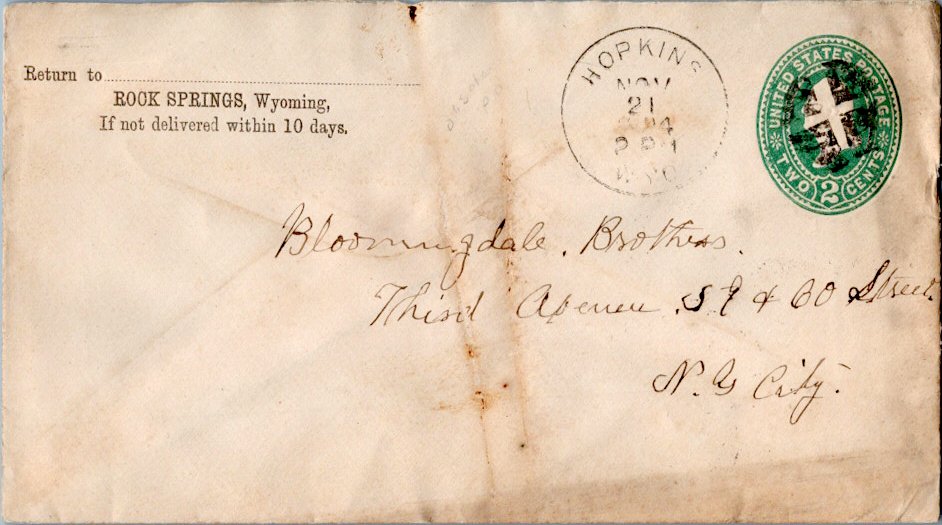 Return to
ROCK SPRINGS, Wyoming,
If not delivered within 10 days.
HOPKINS
NOV
21
4
WYO
UNITED STATES POSTAGE
TWO 2 CENTS
Bloomingdale. Brothers.
Third Avenue. 59 & 60 Street.
N. Y City.